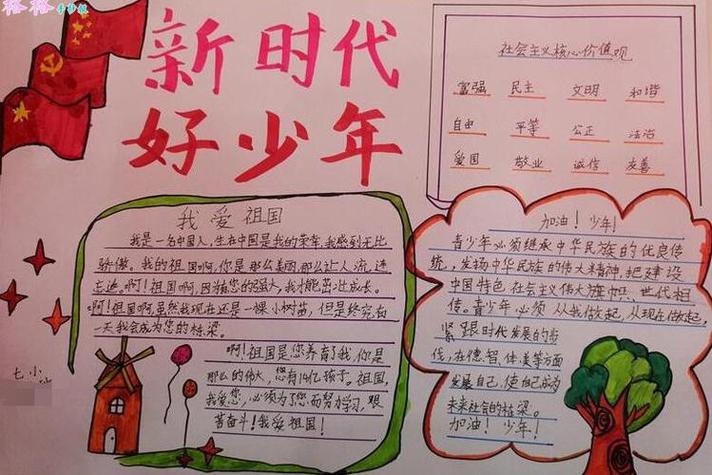 新时代
好少年
社会主义核心价值观
富强 民主 文明 和谐
自由 平等 公正 法治
爱国 敬业 诚信 友善
我爱祖国
我是一名中国人,生在中国是我的荣幸,我感到无比
骄傲。我的祖国啊,你是那么美丽,那么让人流连
忘返。啊!祖国啊,因为您的强大,我才能茁壮成长。
啊!祖国啊虽然我现在还是一棵小树苗,但是终究有
一天我会成为您的栋梁。
啊!祖国是您养育了我,你是
那么的伟大,您有14亿孩子。祖国,
我爱您,必须为了您而努力学习,艰
苦奋斗!我爱祖国!
加油!少年!
青少年必须继承中华民族的优良传
统,发扬中华民族的伟大精神,把建设
中国特色社会主义伟大旗帜,世代相
传。青少年必须从我做起,从现在做起,
紧跟时代发展的步
伐,在德、智、体、美等方面
发展自己,使自己成为
未来社会的栋梁。
加油!少年!
七小